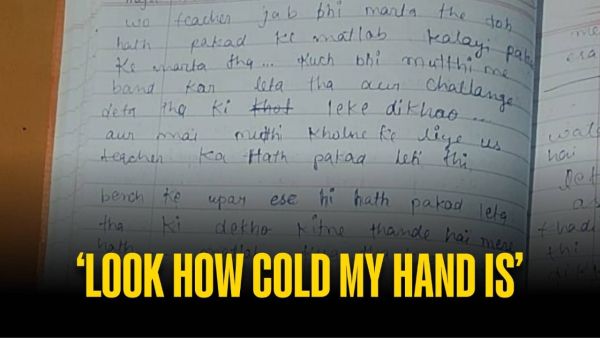 wo teacher jab bhi marta the toh
hath pakad ke matlab kalayi pakad
ke marta tha... kuch bhi mutthi me
band kar leta tha aur challange
deta tha ki leke dikhao..
aur mai muthi kholne ke liye us
teacher ka Hath pakad leti thi
bench ke upar ese hi hath pakad leta
tha ki dekho kitne thande hai mere
hath
wat
hai
let
thad
thi
'LOOK HOW COLD MY HAND IS'